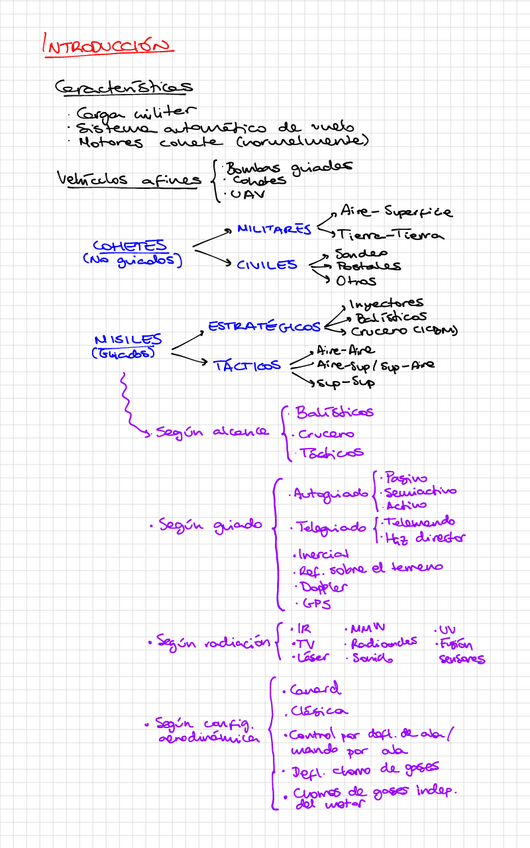 INTRODUCCIÓN
Características
· Carga militar
· Sistema automático de vuelo
· Motores cohete (normalmente)
Vehículos afines
· Bombas guiadas
· Cohetes
· UAV
COHETES
(No guiados)
MILITARES
Aire-Superficie
Tierra-Tierra
CIVILES
Sondeo
Postales
Otros
MISILES
(Guiados)
ESTRATÉGICOS
Inyectores
Balísticos
Crucero (ICBM)
TÁCTICOS
Aire-Aire
Aire-Sup/Sup-Aire
Sup-Sup
Según alcance
· Balísticos
· Crucero
· Tácticos
· Según guiado
· Autoguiado
· Pasivo
· Semiactivo
· Activo
· Teleguiado
· Telemando
· Haz director
· Inercial
· Ref. sobre el terreno
· Doppler
· GPS
· Según radiación
· IR · MMW · UV
· TV · Radioondas · Fusión
· Láser · Sonido sensores
· Según config.
aerodinámica
· Canard
· Clásica
· Control por defl. de ala/
mando por ala
· Defl. chorro de gases
· Chorros de gases indep.
del motor